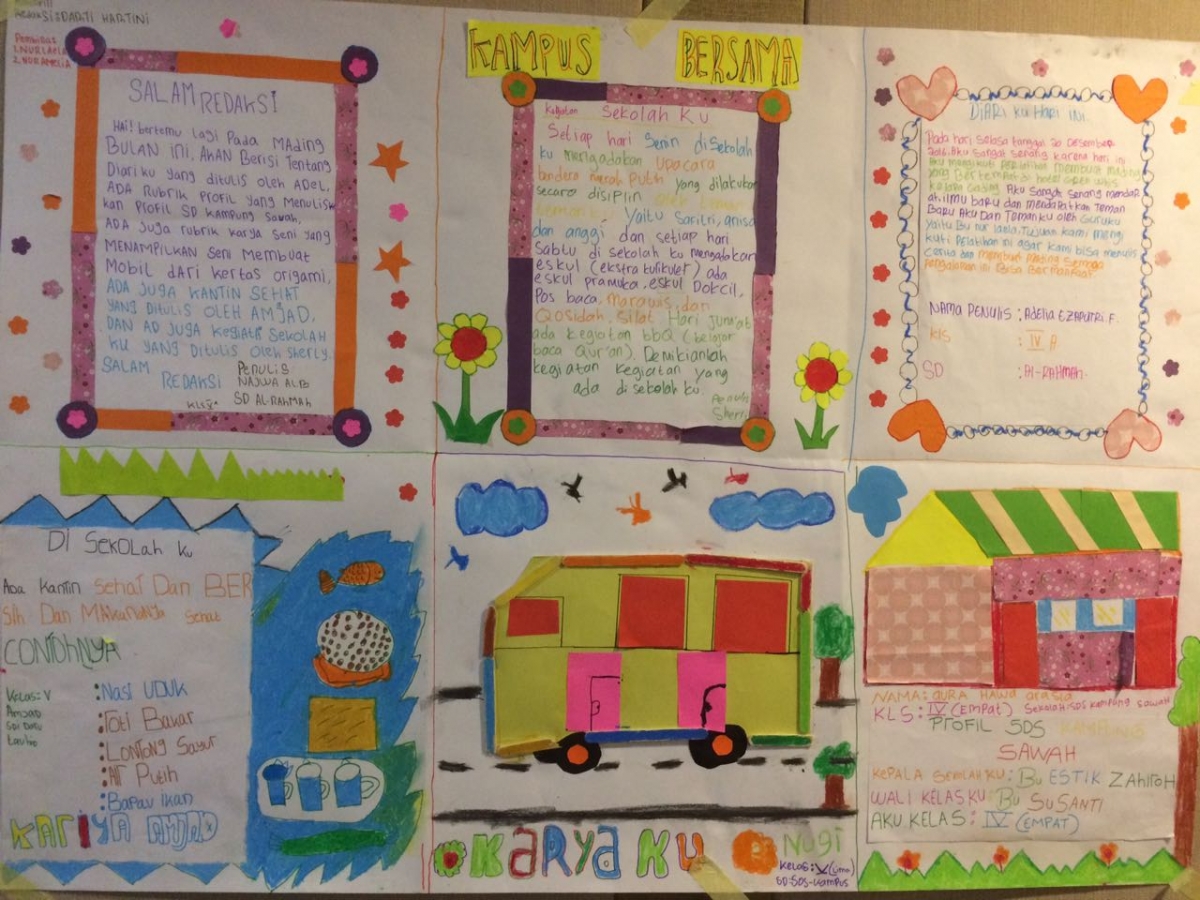 Redaksi: DARTI HARTINI
Pembuat
1. NUR LAILA
2. NUR AMELIA
SALAM REDAKSI
HAi! bertemu lagi Pada MADING
BULAN ini, AKAN Berisi Tentang
Diari ku yang ditulis oleh ADEL,
ADA Rubrik Profil yang Menulis
kan Profil SD Kampung Sawah,
ADA Juga rubrik karya Seni yang
MENAMPILKAN Seni Membuat
Mobil dARi Kertas origami,
ADA JUGA KANTIN SEHAT
YANG DiTULIS OLEH AMJAD,
DAN AD JUGA KEGIATA SEKOLAH
KU YANG DITULIS OLEH Sherly.
SALAM
REDAKSI
PENULIS
NAJWA ALB
KLS V
SD AL-RAHMAH
KAMPUS BERSAMA
Kegiatan Sekolah Ku
Setiap hari Senin diSekolah
ku mengadakan Upacara
bendera merah Putih yang dilakukan
secara disiplin
Yaitu Saritri, anisa
dan anggi dan setiap hari
Sabtu di sekolah ku mengadakan
eskul (ekstra kulikuler) ada
eskul pramuka, eskul Dokcil,
Pos baca, marawis, dan
Qosidah, Silat Hari Jum'at
ada kegiatan BBQ (belajar
baca Qur'an). Demikianlah
kegiatan kegiatan yang
ada disekolah ku.
Penulis
Sherli
DiARi KU HARI iNi.
Pada hari selasa tanggal 20 Desember
2016. Aku sangat senang karena hari ini
Aku mengikuti pelatihan membuat mading
yang Bertempat di hotel
kelapa Gading. Aku sangat senang mendap
at ilmu baru dan mendapatkan Teman
Baru Aku Dan Temanku oleh Guruku
yaitu Ibu nur laila, Tujuan kami mengi
kuti Pelatihan ini agar kami bisa menulis
cerita dan membuat mading Semoga
pengalaman ini Bisa Bermanfaat
NAMA PENULIS : ADELIA EZAPUTRI.F.
KLS : IV A
SD : AL-RAHMAH.
Di SeKOLah Ku
Ada kantin SeHaT Dan BER
SIh Dan MAkananNya Sehat
CONTOHNYA
Kelas: V
Amjad
:Nasi UDUK
:ROTi Bakar
:LONTONG Sayur
:AiR Putih
:Bapau ikan
KARIYA AMJAD
KARYA KU
Nugi
KELAS: V (Lima)
SD: SDS-Kampus
NAMA: aURA HAWA
KLS: IV (EMPAT) SekolaH: SDS kampung sawah
PROFIL SDS KAMPUNG
SAWAH
KEPALA SEKOLAH KU: Bu ESTIK ZAHIROH
WALI KELAS KU: Bu SUSANTI
AKU KELAS: IV (EMPAT)